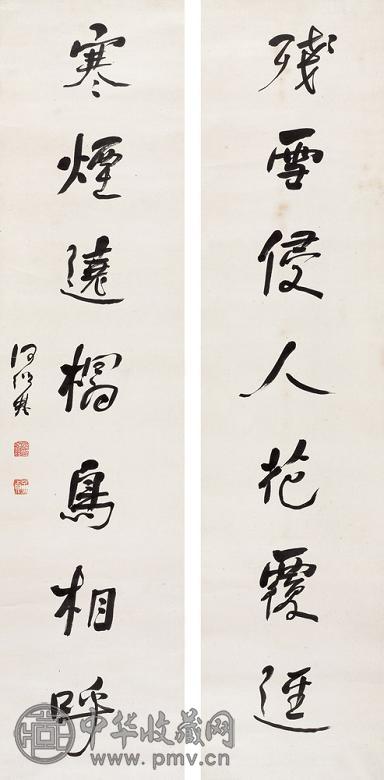 殘雪侵人花覆逕
寒煙遶橋鳥相呼
何紹基
中华收藏网
www.pmv.cn